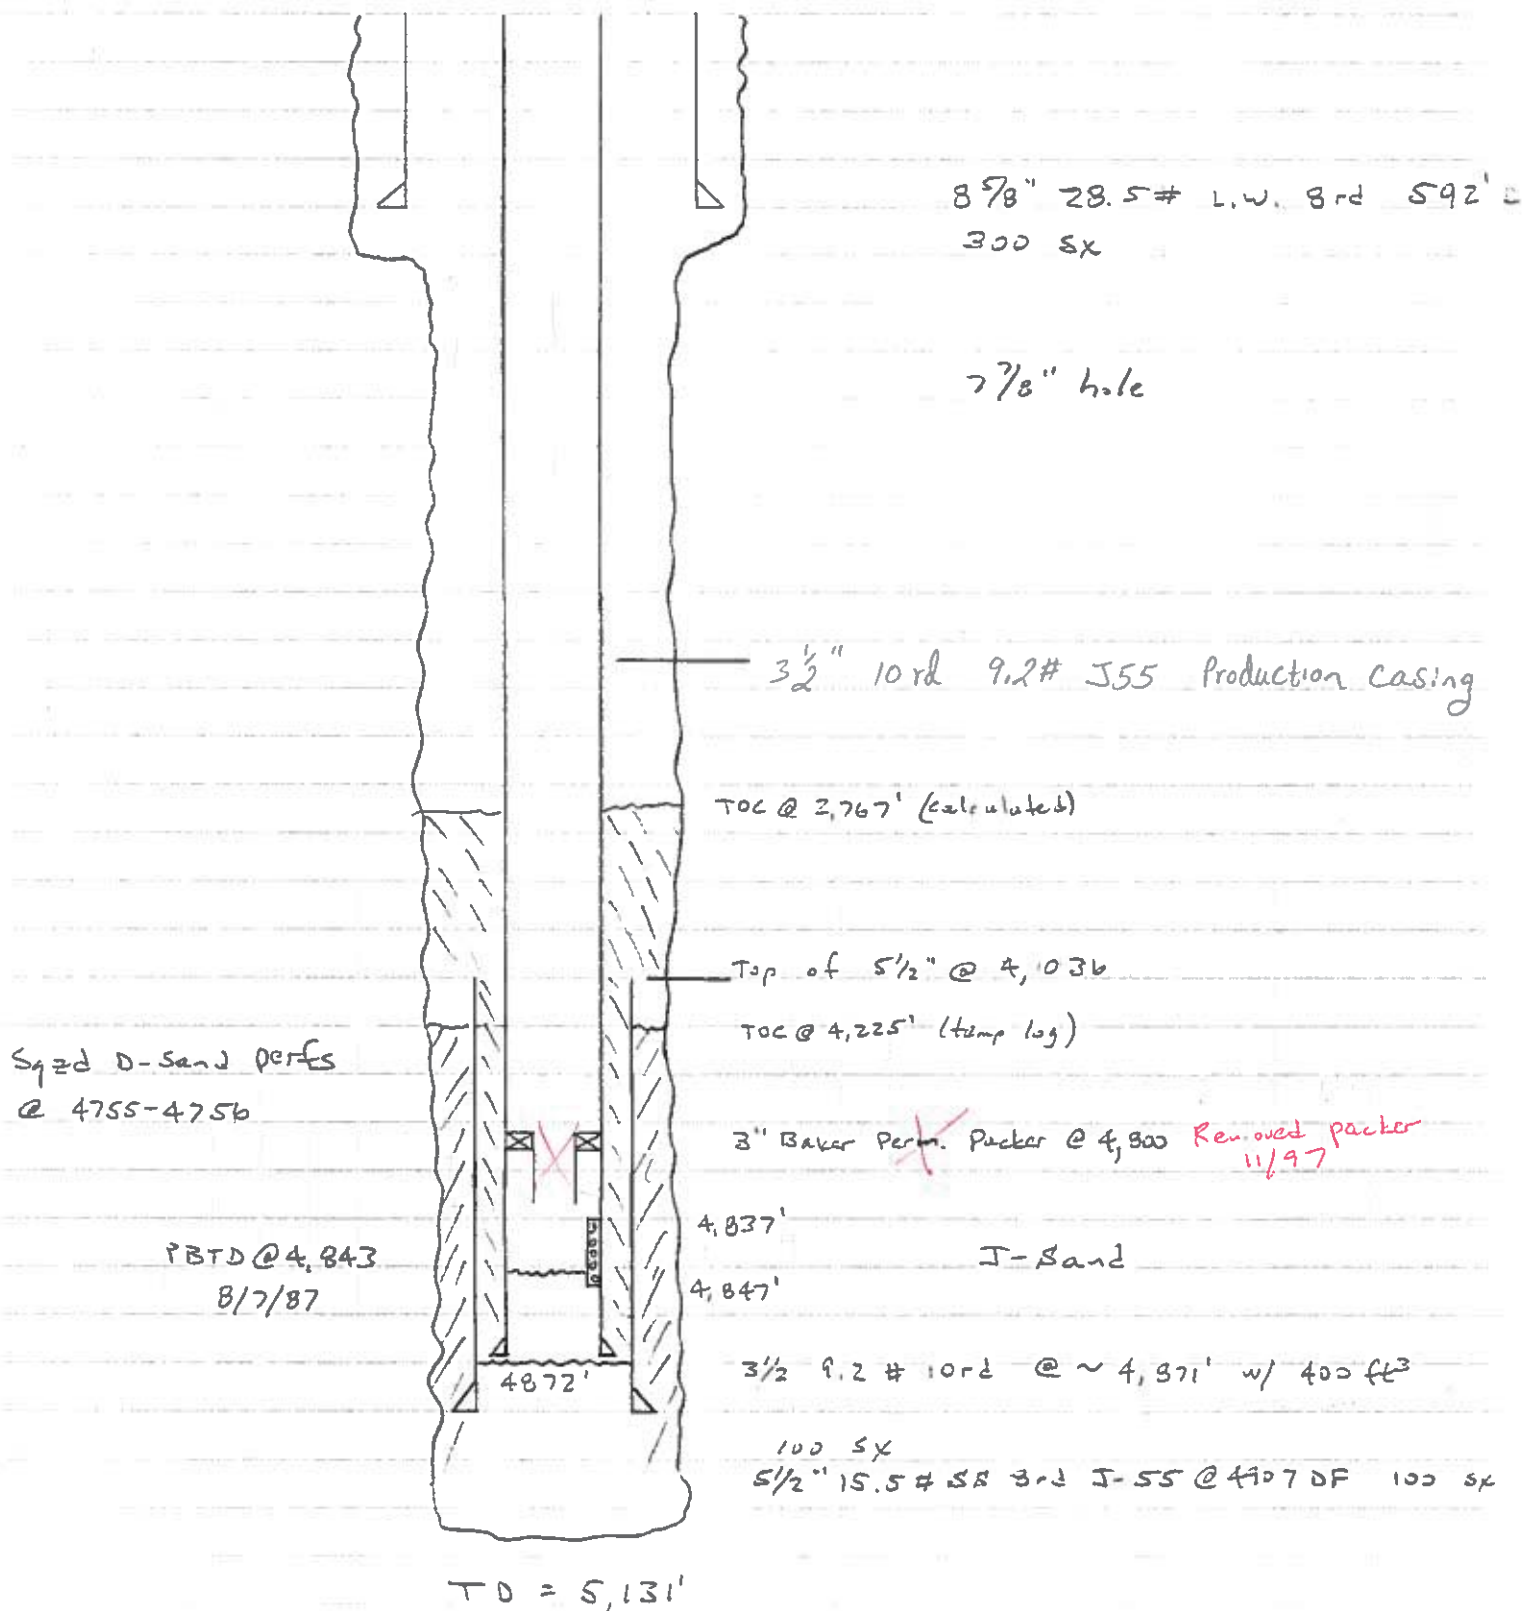 8 5/8" 28.5# L.W. 8rd 592'
300 sx
7 7/8" hole
3 1/2" 10rd 9.2# J55 Production Casing
TOC @ 2,767' (calculated)
Top of 5 1/2" @ 4,036
TOC @ 4,225' (temp log)
Sqzd D-Sand perfs
@ 4755-4756
3" Baker Perm. Packer @ 4,800 Removed packer
11/97
4,837'
PBTD @ 4,843
8/7/87
J-Sand
4,847'
3 1/2 9.2 # 10rd @ ~ 4,871' w/ 400 ft³
4872'
100 sx
5 1/2" 15.5 # SS 8rd J-55 @ 4907 DF 100 sx
TD = 5,131'